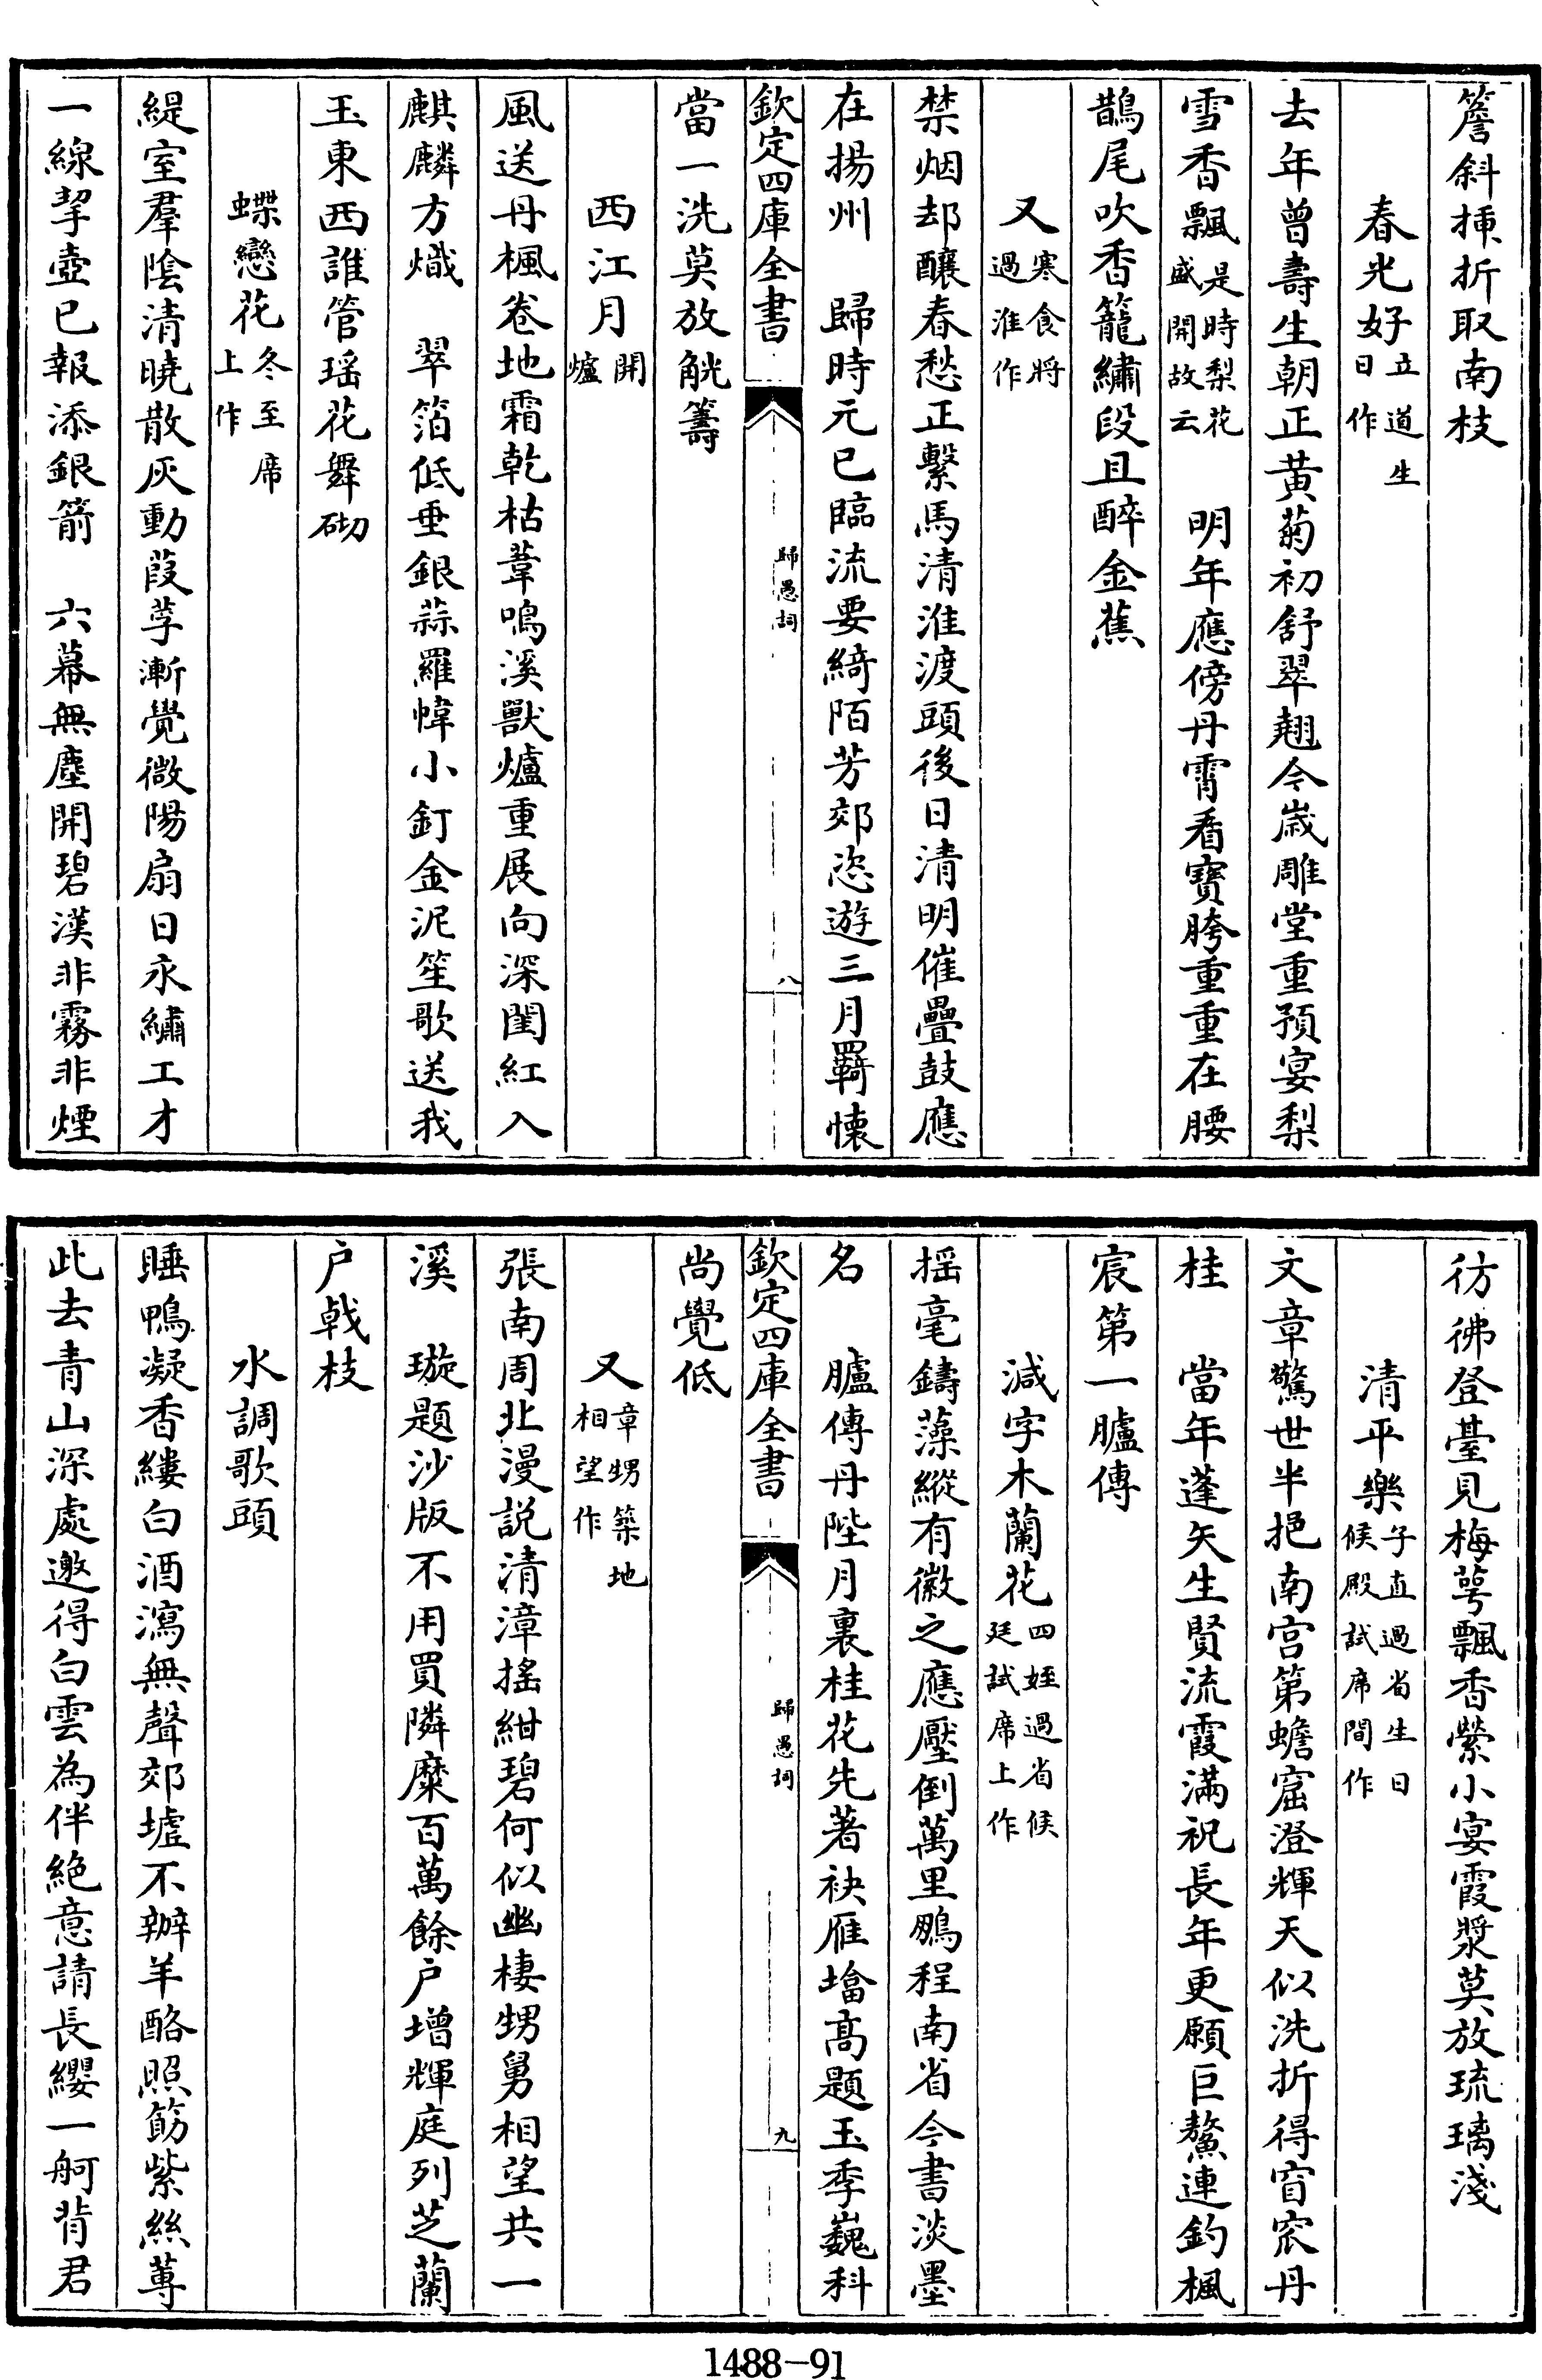 簷斜揷折取南枝
春光好立道生日作
去年曾壽生朝正黄菊初舒翠翹今嵗雕堂重預宴梨
雪香飄是時梨花盛開故云　明年應傍丹霄看寳胯重重在腰
鵲尾吹香籠繡段且醉金蕉
又寒食將過淮作
禁烟却釀春愁正繫馬清淮渡頭後日清明催疊鼓應
在揚州　歸時元已臨流要綺陌芳郊恣遊三月羇懐
欽定四庫全書　歸愚詞　八
當一洗莫放觥籌
西江月開爐
風送丹楓卷地霜乾枯葦鳴溪獸爐重展向深閨紅入
麒麟方熾　翠箔低垂銀蒜羅幃小釘金泥笙歌送我
玉東西誰管瑶花舞砌
蝶戀花冬至席上作
緹室羣陰清曉散灰動葭莩漸覺微陽扇日永繡工才
一線挈壺已報添銀箭　六幕無塵開碧漢非霧非煙
彷彿登臺見梅萼飄香縈小宴霞漿莫放琉璃淺
清平樂子直過省生日候殿試席間作
文章驚世半挹南宫第蟾窟澄輝天似洗折得窅窊丹
桂　當年蓬矢生賢流霞滿祝長年更願巨鰲連釣楓
宸第一臚傳
減字木蘭花四姪過省候廷試席上作
揺毫鑄藻縱有徽之應壓倒萬里鵬程南省今書淡墨
名　臚傳丹陛月裏桂花先著袂雁墖髙題玉季巍科
欽定四庫全書　歸愚詞　九
尚覺低
又章甥築地相望作
張南周北漫説清漳搖紺碧何似幽棲甥舅相望共一
溪　璇題沙版不用買隣縻百萬餘户增輝庭列芝蘭
户戟枝
水調歌頭
睡鴨凝香縷白酒瀉無聲郊墟不辦羊酪照筯紫絲蓴
此去青山深處邀得白雲為伴絶意請長纓一舸背君
1488-91